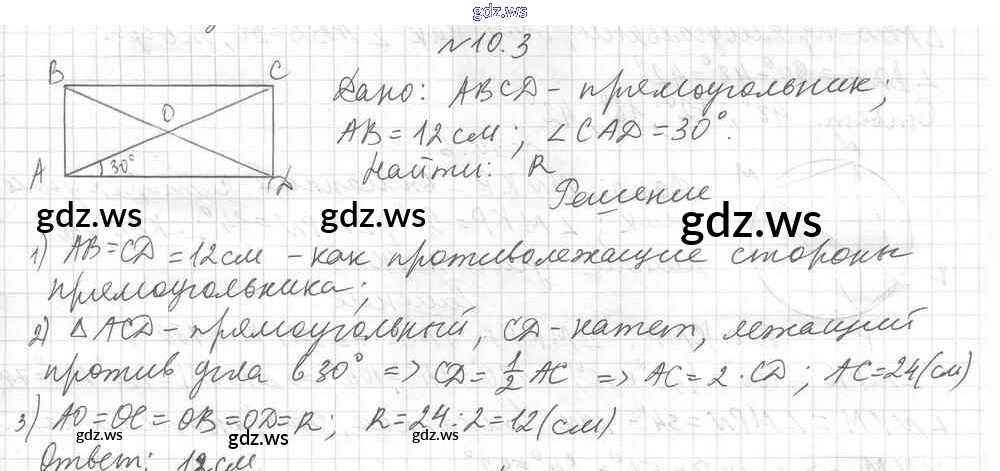 gdz.ws
№10.3
B C
O
A 30° D
Дано: ABCD - прямоугольник;
AB = 12 см; ∠CAD = 30°.
Найти: R
Решение
gdz.ws gdz.ws gdz.ws
1) AB = CD = 12 см - как противолежащие стороны
прямоугольника;
2) △ACD - прямоугольный, CD - катет, лежащий
против угла в 30° => CD = 1/2 AC => AC = 2 · CD; AC = 24 (см)
3) AO = OC = OB = OD = R; R = 24 : 2 = 12 (см)
gdz.ws gdz.ws gdz.ws
Ответ: 12 см.